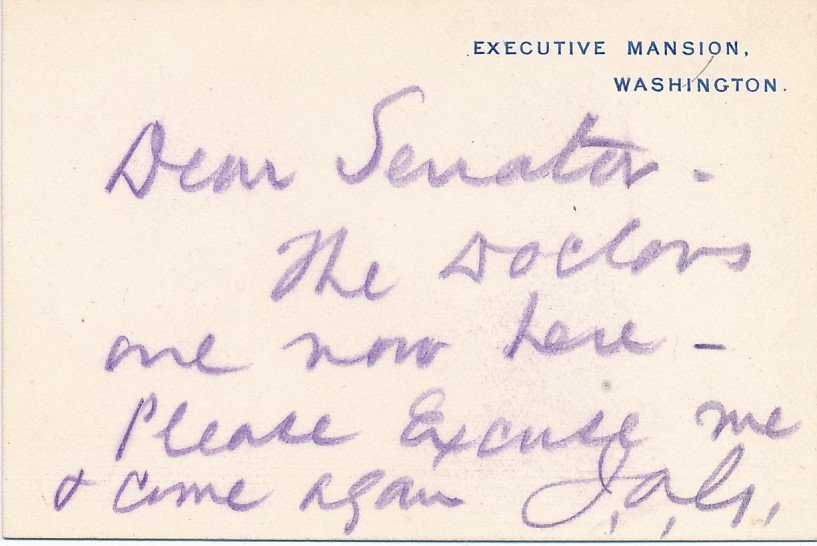 EXECUTIVE MANSION,
WASHINGTON.
Dear Senator -
The Doctors
are now here -
Please Excuse me
& come again J.A.G.,